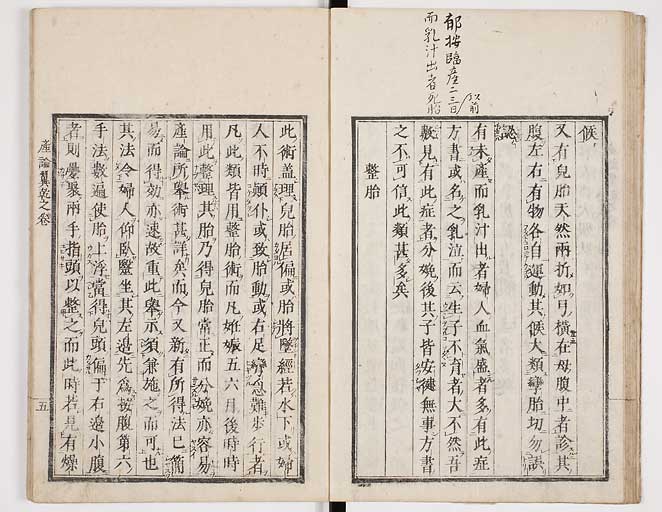 郁按臨産二三日
以前
而乳汁出者死胎
候
又有兒胎天然兩折如弓橫在母腹中者診其
腹左右有物各自運動其候大類孿胎切勿誤
認
有未產而乳汁出者婦人血氣盛者多有此症
方書或名之乳泣而云生子不育者大不然吾
數見有此症者分娩後其子皆安健無事方書
之不可信此類甚多矣
整胎
此術蓋理兒胎居偏或胎將墜經若水下或婦
人不時顛仆或致胎動或右足攣急難步行者
凡此類皆用整胎術而凡姙娠五六月後時時
用此整理其胎乃得兒胎常正而分娩亦容易
產論所舉術甚詳矣而今又新有所得法已簡
易而得効亦速故重此舉示須兼施之而可也
其法令婦人仰臥醫坐其左邊先為按腹第六
手法數遍使胎上浮當得兒頭偏于右邊小腹
者則疊聚兩手指頭以整之而此時若見有燥
產論翼乾之卷
五